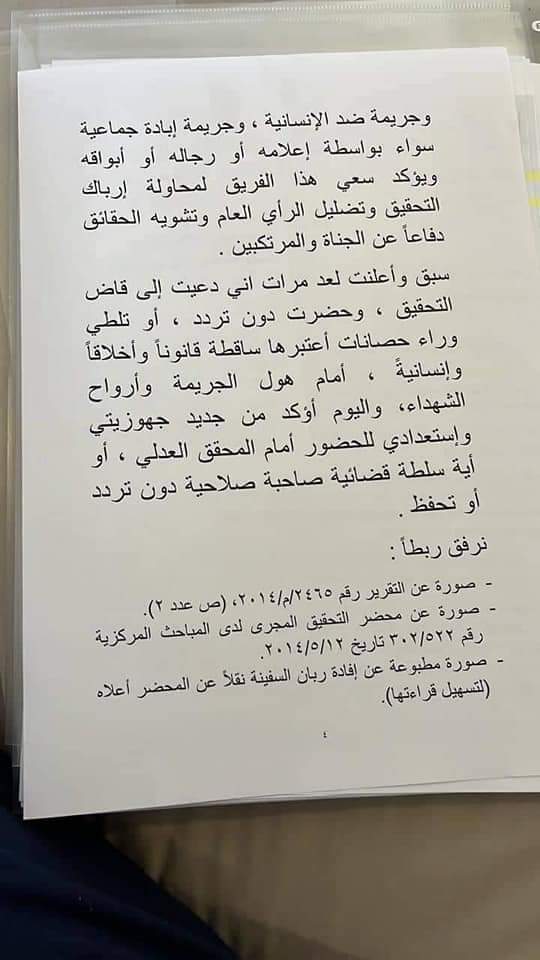 وجريمة ضد الإنسانية ، وجريمة إبادة جماعية
سواء بواسطة إعلامه أو رجاله أو أبواقه
ويؤكد سعي هذا الفريق لمحاولة إرباك
التحقيق وتضليل الرأي العام وتشويه الحقائق
دفاعاً عن الجناة والمرتكبين .
سبق وأعلنت لعد مرات اني دعيت إلى قاض
التحقيق ، وحضرت دون تردد ، أو تلطي
وراء حصانات أعتبرها ساقطة قانوناً وأخلاقاً
وإنسانيةً ، أمام هول الجريمة وأرواح
الشهداء، واليوم أؤكد من جديد جهوزيتي
وإستعدادي للحضور أمام المحقق العدلي ، أو
أية سلطة قضائية صاحبة صلاحية دون تردد
أو تحفظ .
نرفق ربطاً :
- صورة عن التقرير رقم ٢٤٦٥/م/٢٠١٤، (ص عدد ٢).
- صورة عن محضر التحقيق المجرى لدى المباحث المركزية
رقم ٣٠٢/٥٢٢ تاريخ ٢٠١٤/٥/١٢.
- صورة مطبوعة عن إفادة ربان السفينة نقلاً عن المحضر أعلاه
(لتسهيل قراءتها).
٤